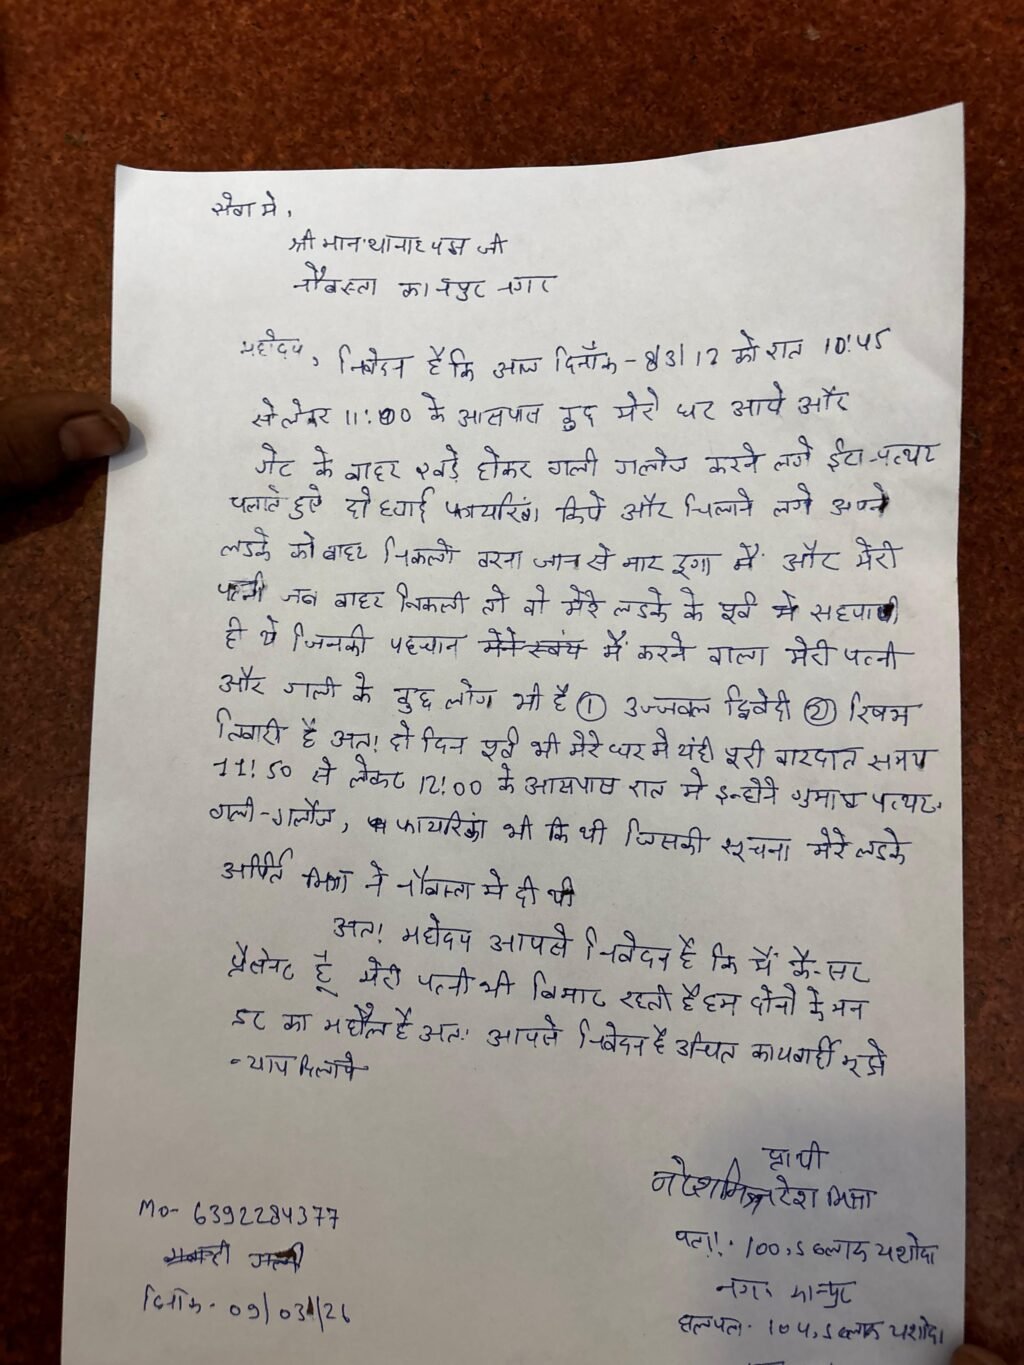 सेवा मे,
श्री मान थानाध्यक्ष जी
नौबस्ता कानपुर नगर
महोदय, निवेदन है कि आज दिनाँक - 8/3/12 को रात 10:45
से लेकर 11:00 के आसपास कुछ मेरे घर आये और
गेट के बाहर खड़े होकर गाली गलौज करने लगे ईटा-पत्थर
चलाते हुऐ दो फायरिंग किये और चिलाने लगे अपने
लडके को बाहर निकलो वरना जान से मार दूगा मैं और मेरी
पत्नी जब बाहर निकली तो वो मेरे लडके के पूर्व मे सहपाठी
ही थे जिनकी पहचान मेने स्वंय में करने वाला मेरी पत्नी
और गली के कुछ लोग भी है ① उज्जवल द्विवेदी ② रिषभ
तिवारी है अत! दो दिन पूर्व भी मेरे घर मे यही पूरी वारदात समय
11:50 से लेकर 12:00 के आसपास रात मे इन्होने पत्थर,
गाली-गलौज, फायरिंग भी कि थी जिसकी सूचना मेरे लडके
अर्पित मिश्रा ने नौबस्ता मे दी थी
अत! महोदय आपसे निवेदन है कि मैं कैन्सर
पैसेन्ट हूँ मेरी पत्नी भी बिमार रहती है हम दोनो के मन
डर का महौल है अत: आपसे निवेदन है उचित कायवाही मुझे
न्याय दिलाये
प्रार्थी
नरेश मिश्रा नरेश मिश्रा
पता!- 100, S ब्लाक यशोदा
नगर कानपुर
हालपता- 104, S ब्लाक यशोदा
Mo- 6392284377
दिनाँक- 09/03/26